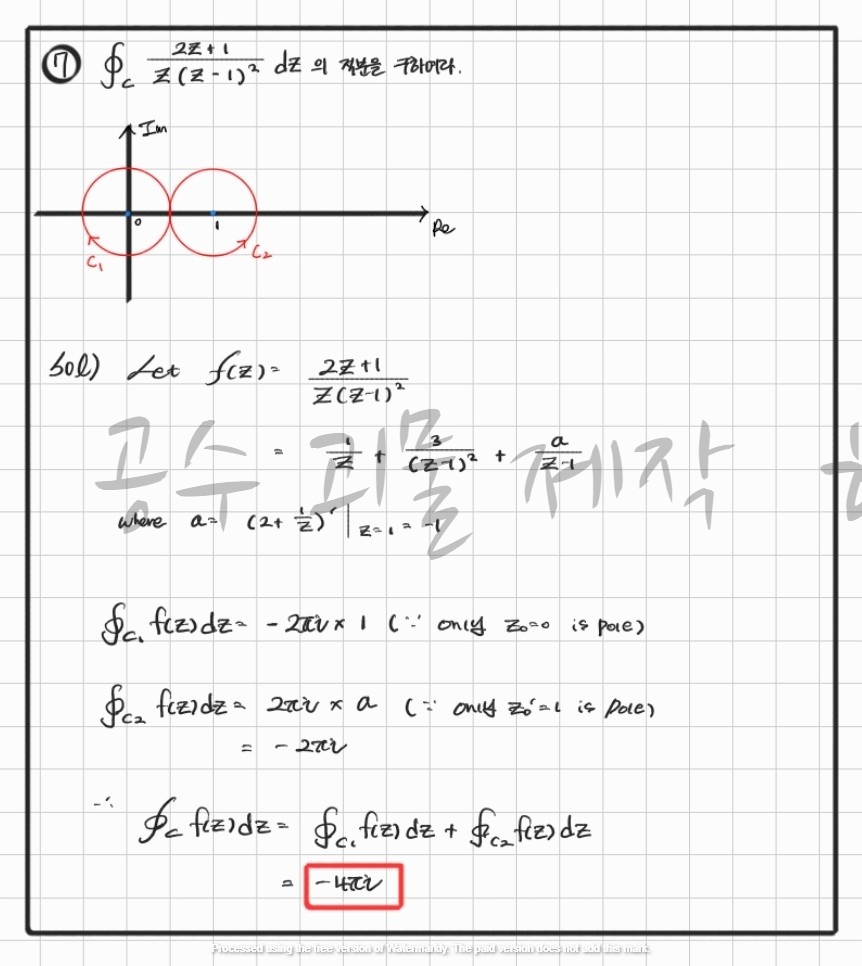 ⑦ ∮_C (2z+1)/(z(z-1)²) dz 의 적분을 구하여라.
Im
0 1 Re
C₁ C₂
Sol) Let f(z) = (2z+1)/(z(z-1)²)
= 1/z + 3/(z-1)² + a/(z-1)
공수 괴물 제작
where a = (2+1/z)' |_{z=1} = -1
∮_{C₁} f(z)dz = -2πi × 1 (∵ only z₀=0 is pole)
∮_{C₂} f(z)dz = 2πi × a (∵ only z₀'=1 is pole)
= -2πi
∴ ∮_C f(z)dz = ∮_{C₁} f(z)dz + ∮_{C₂} f(z)dz
= -4πi
Processed using the free version of Watermarkly. The paid version does not add this mark.